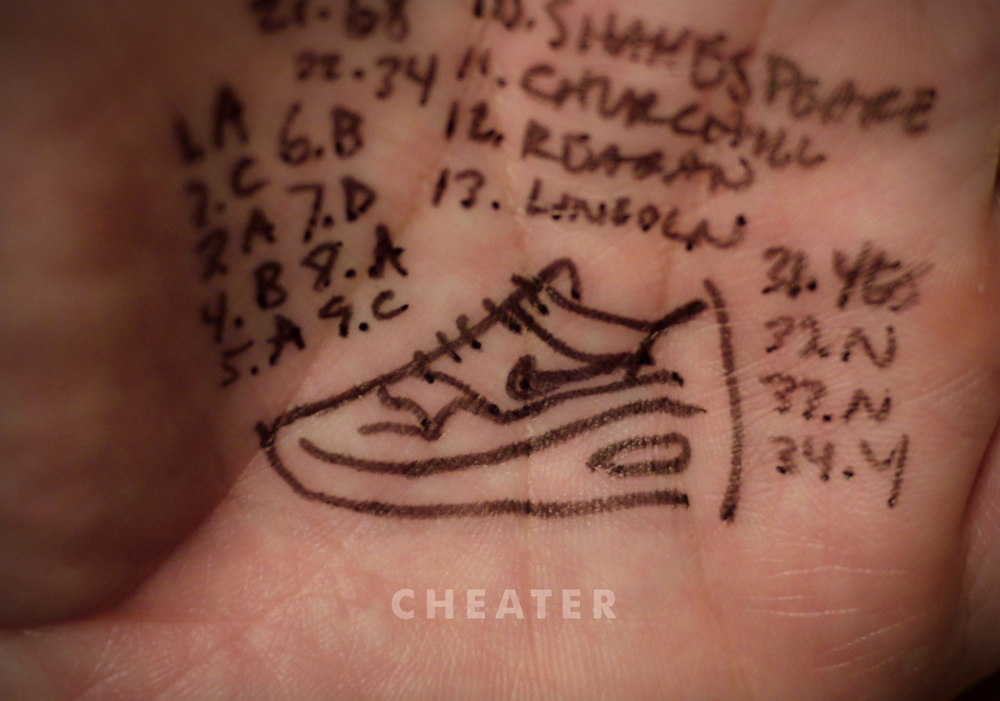 21. 68
22. 34
1. A 6. B
2. C 7. D
3. A 8. A
4. B 9. C
5. A
10. SHAKESPEARE
11. CHURCHILL
12. REAGAN
13. LINCOLN
31. YES
32. N
33. N
34. Y
CHEATER